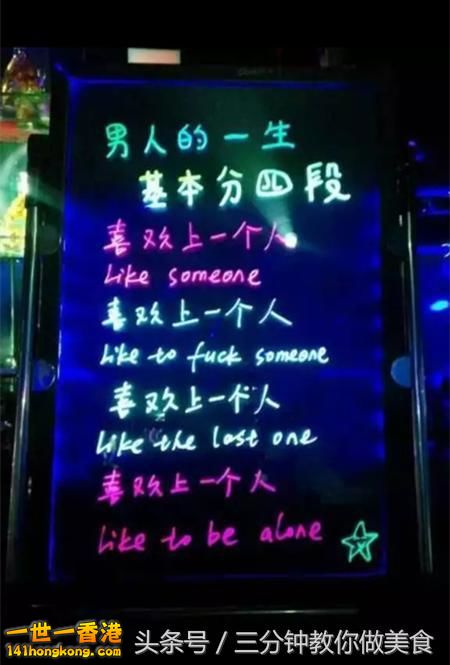 男人的一生
基本分四段
喜欢上一个人
Like someone
喜欢上一个人
Like to fuck someone
喜欢上一个人
Like the last one
喜欢上一个人
Like to be alone
一世一香港
141hongkong.com
头条号 / 三分钟教你做美食